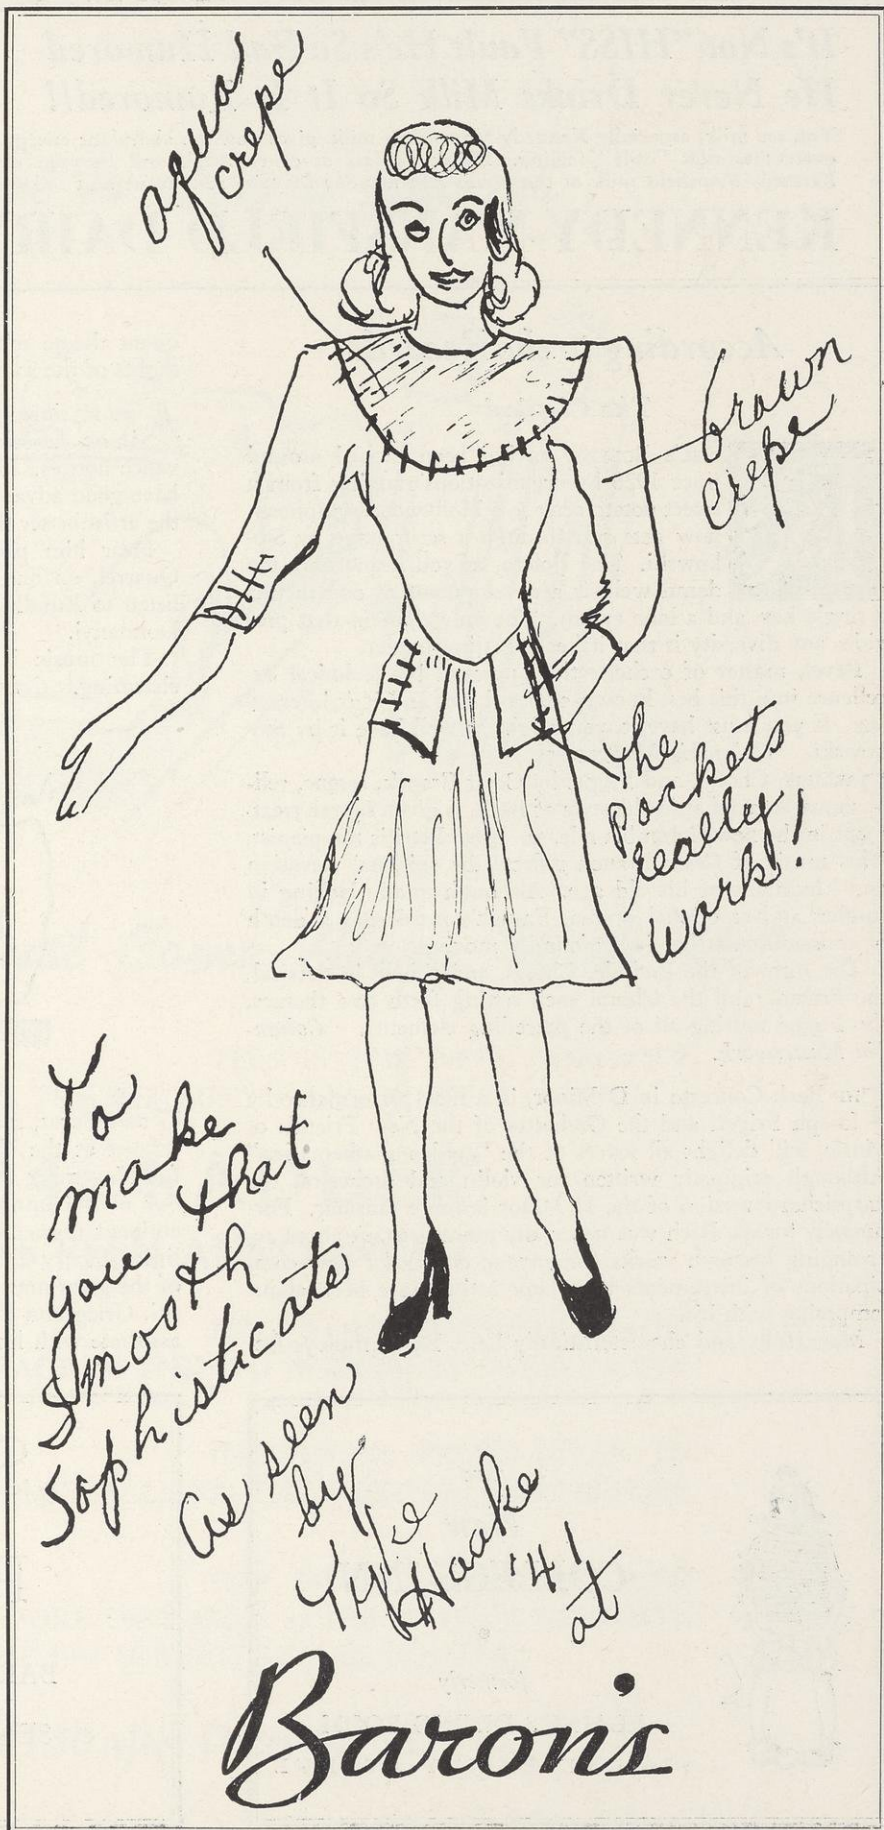 aqua
crepe
brown
crepe
The
pockets
really
work!
To
make
you that
Smooth
Sophisticate
as seen
by
Tyke
Haake
'41
at
Baron's